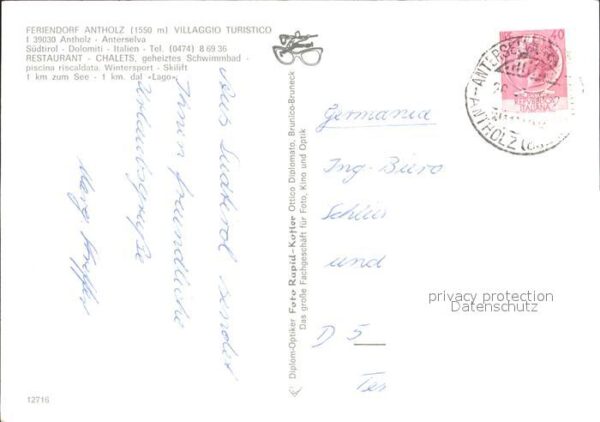 FERIENDORF ANTHOLZ (1550 m) VILLAGGIO TURISTICO
I 39030 Antholz - Anterselva
Südtirol - Dolomiti - Italien - Tel. (0474) 8 69 36
RESTAURANT - CHALETS, geheiztes Schwimmbad -
piscina riscaldata. Wintersport - Skilift
1 km zum See - 1 km. dal «Lago»
Aus Südtirol sendet
Ihnen freundliche
Urlaubsgrüße
Diplom-Optiker Foto Rapid-Kofler Ottico Diplomato, Brunico-Bruneck
Das große Fachgeschäft für Foto, Kino und Optik
40
REPUBBLICA
ITALIANA
ANTHOLZ
Germania
Ing-Büro
und
D 5
privacy protection
Datenschutz
12716